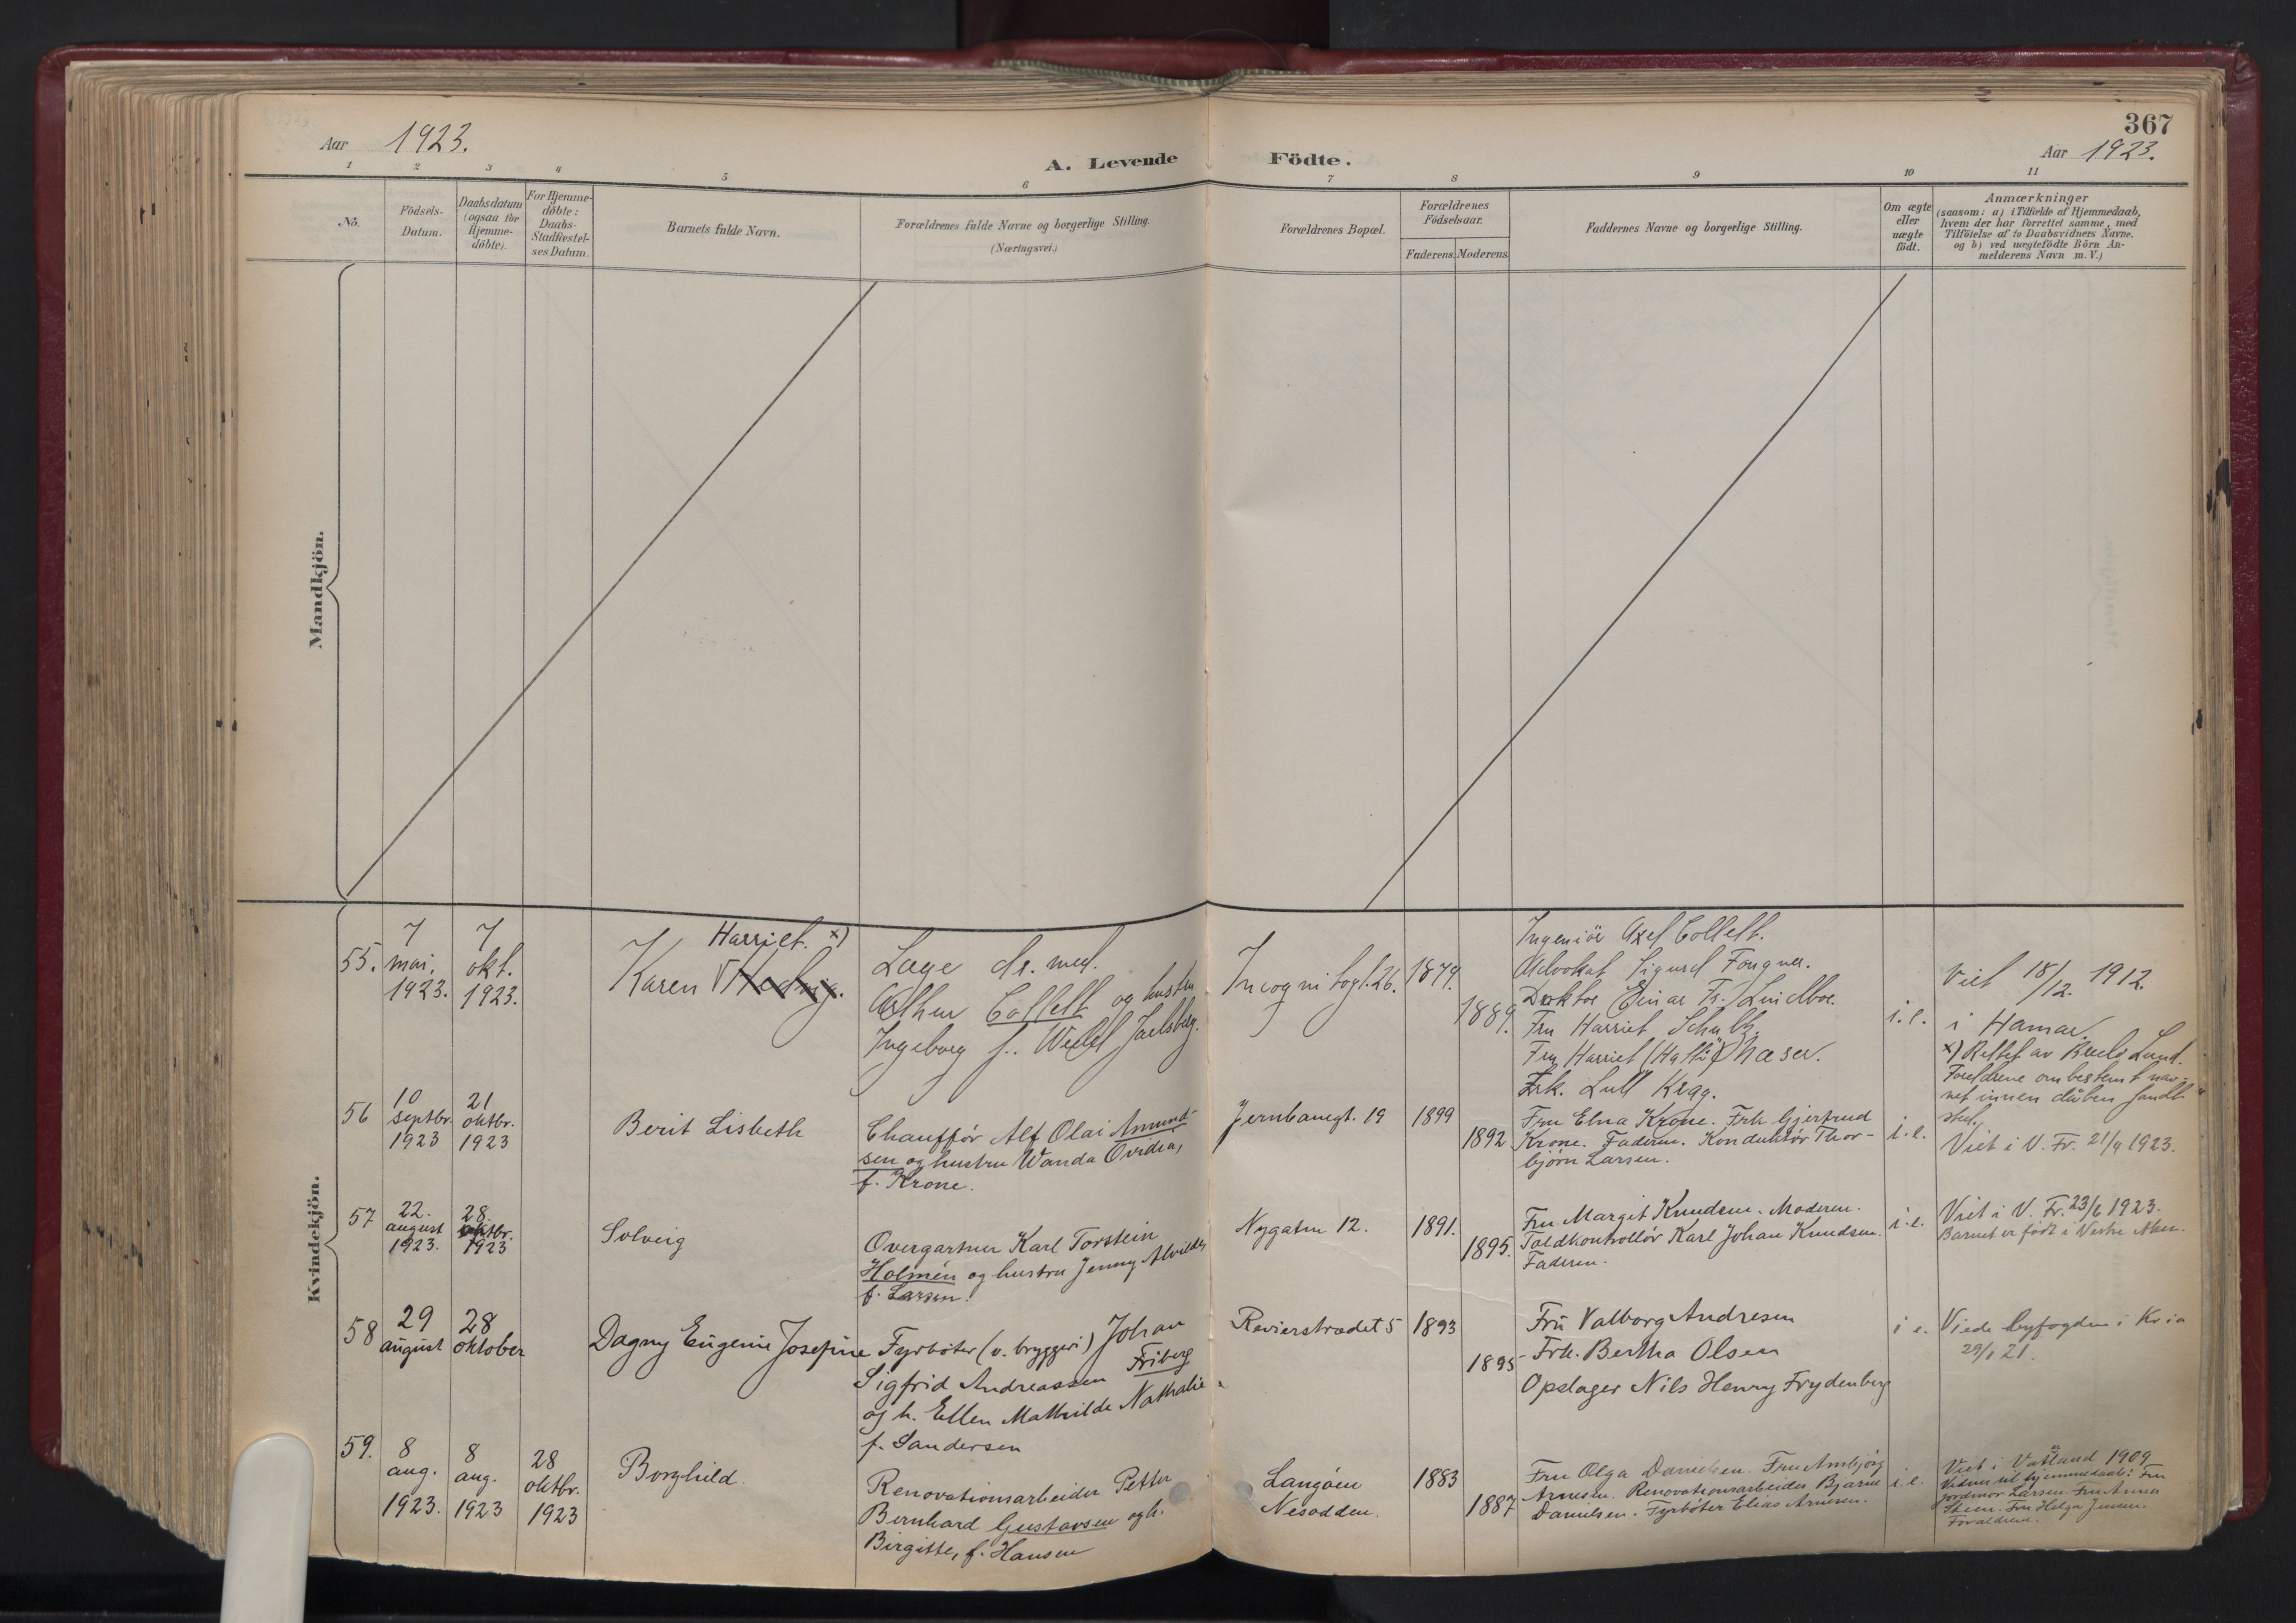 367
Aar 1923.
A. Levende Födte.
Aar 1923.
1 2 3 4 5 6 7 8 9 10 11
No.
Födsels-
Datum.
Daabsdatum
(ogsaa for
Hjemme-
döbte).
For Hjemme-
döbte:
Daabs-
Stadfæstel-
ses Datum.
Barnets fulde Navn.
Forældrenes fulde Navne og borgerlige Stilling.
(Næringsvei.)
Forældrenes Bopæl.
Forældrenes
Födselsaar.
Faderens. Moderens.
Faddernes Navne og borgerlige Stilling.
Om ægte
eller
uægte
födt.
Anmærkninger
(saasom: a) i Tilfælde af Hjemmedaab,
hvem der har forrettet samme, med
Tilföielse af to Daabsvidners Navne.
og b) ved uægtefödte Börn An-
melderens Navn m. V.)
Mandkjön.
Kvindekjön.
55.
7
mai.
1923.
7
okt.
1923.
Harriet. x)
Karen Hedvig.
Læge dr. med.
Arthur Collett og hustru
Ingeborg f. Wedel Jarlsberg.
Incognitogt. 26.
1879.
1889.
Ingeniör Axel Collett.
Advokat Sigurd Fougner.
Doktor Einar Fr. Lindboe.
Fru Harriet Schultz.
Fru Harriet
Frk. Lull Krag.
i. e.
Viet 18/12. 1912.
i Hamar.
x) Rettet av Lund.
Foreldrene ombestemt nav-
net innen dåben fandt
sted.
56
10
septbr.
1923
21
oktbr.
1923
Berit Lisbeth
Chauffør Alf Olai Amund-
sen og hustru Wanda Ovidia,
f. Krone.
Jernbanegt. 19
1899
1892
Fru Elna Krone. Frk Gjertrud
Krone. Faderen. Konduktør Thor-
bjørn Larsen.
i. e.
Viet i V. Fr. 21/4 1923.
57
22.
august
1923.
28.
oktbr.
1923
Solveig
Overgartner Karl Torstein
Holmén og hustru Jenny Alvilde,
f. Larsen.
Nygaten 12.
1891.
1895.
Fru Margit Knudsen. Moderen.
Toldkontrollør Karl Johan Knudsen.
Faderen.
i. e.
Viet i V. Fr. 23/6 1923.
Barnet er født i Vestre Aker.
58
29
august
28
oktober
Dagny Eugenie Josefine
Fyrbøter (v. bryggeri) Johan
Sigfrid Andreassen Friberg
og h. Ellen Mathilde Nathalie
f. Sandersen
Revierstrædet 5
1893
1895
Fru Valborg Andresen
Frk. Bertha Olsen
Opslager Nils Henry Frydenberg
i e.
Viede byfogden i Kr.ia
29/1 21.
59.
8
aug.
1923.
8
aug.
1923
28
oktbr.
1923
Borghild.
Renovationsarbeider Petter
Bernhard Gustavsen og h.
Birgitte, f. Hansen
Langøen
Nesodden.
1883
1887
Fru Olga Danielsen. Fru Ambjørg
Arnesen. Renovationsarbeider Bjarne
Danielsen. Fyrbøter Elias Arnesen.
i. e.
Viet i Vatland 1909
Vidner ved hjemmedaab: Fru
jordmor Larsen. Fru Anna
Steen. Fru Helga Jensen.
Forældrene.